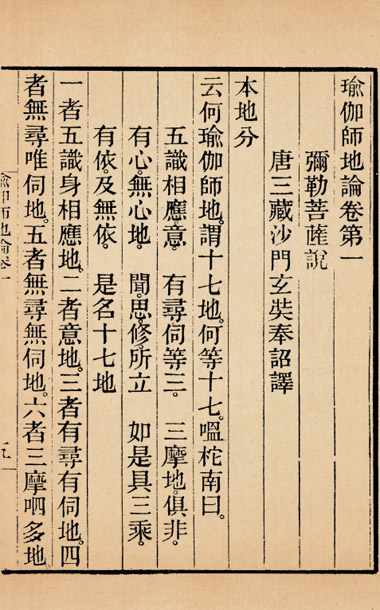 瑜伽師地論卷第一
彌勒菩薩說
唐三藏沙門玄奘奉詔譯
本地分
云何瑜伽師地。謂十七地。何等十七。嗢柁南曰。
五識相應意　有尋伺等三。三摩地俱非。
有心無心地　聞思修所立　如是具三乘。
有依及無依。是名十七地
一者五識身相應地。二者意地。三者有尋有伺地。四
者無尋唯伺地。五者無尋無伺地。六者三摩呬多地
瑜伽師地論卷一